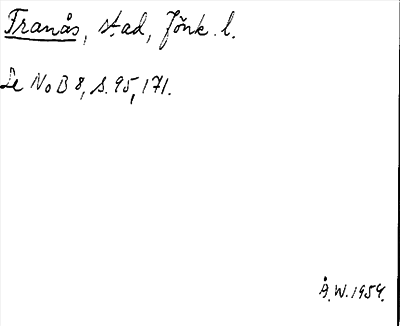 Tranås, stad, Jönk. l.
Se NoB 8, s. 95, 171.
Å.W. 1954.